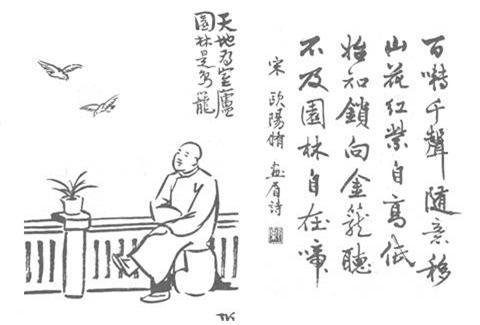 百囀千聲隨意移
山花紅紫自高低
始知鎖向金籠聽
不及園林自在啼
宋 歐陽脩 畫眉詩
天地為室廬
園林是鳥籠
TK